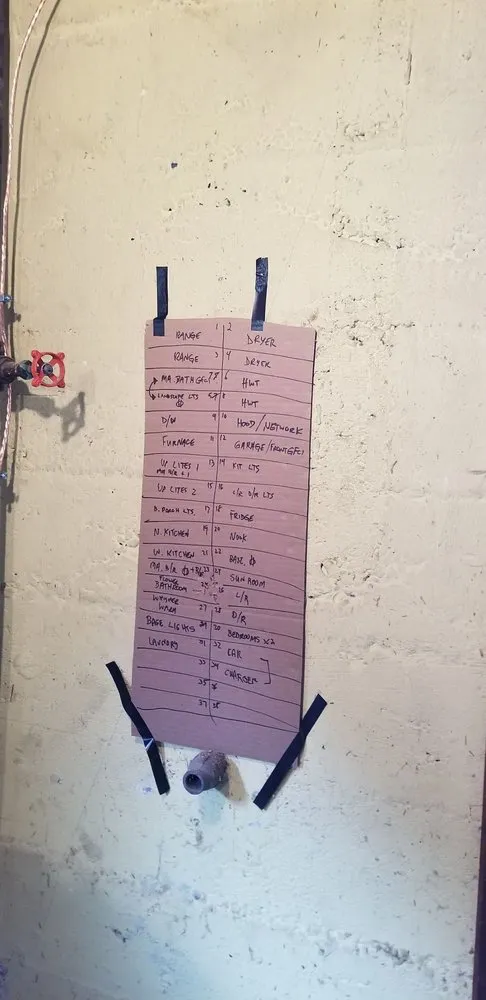 RANGE 1 2 DRYER
RANGE 3 4 DRYER
MA. BATH GFCI 6 HWT
LANDSCAPE LTS 8 HWT
D/W 9 10 HOOD/NETWORK
FURNACE 11 12 GARAGE/FRONT GFCI
UP LITES 1 13 14 KIT LTS
UP LITES 2 15 16 L/R D/R LTS
B. PORCH LTS. 17 18 FRIDGE
N. KITCHEN 19 20 NOOK
W. KITCHEN 21 22 BASE.
MA. B/R 23 24 SUNROOM
BATHROOM 26 L/R
27 28 D/R
BASE LIGHTS 29 30 BEDROOMS X2
LAUNDRY 31 32 CAR
33 34 CHARGER
35
37 38